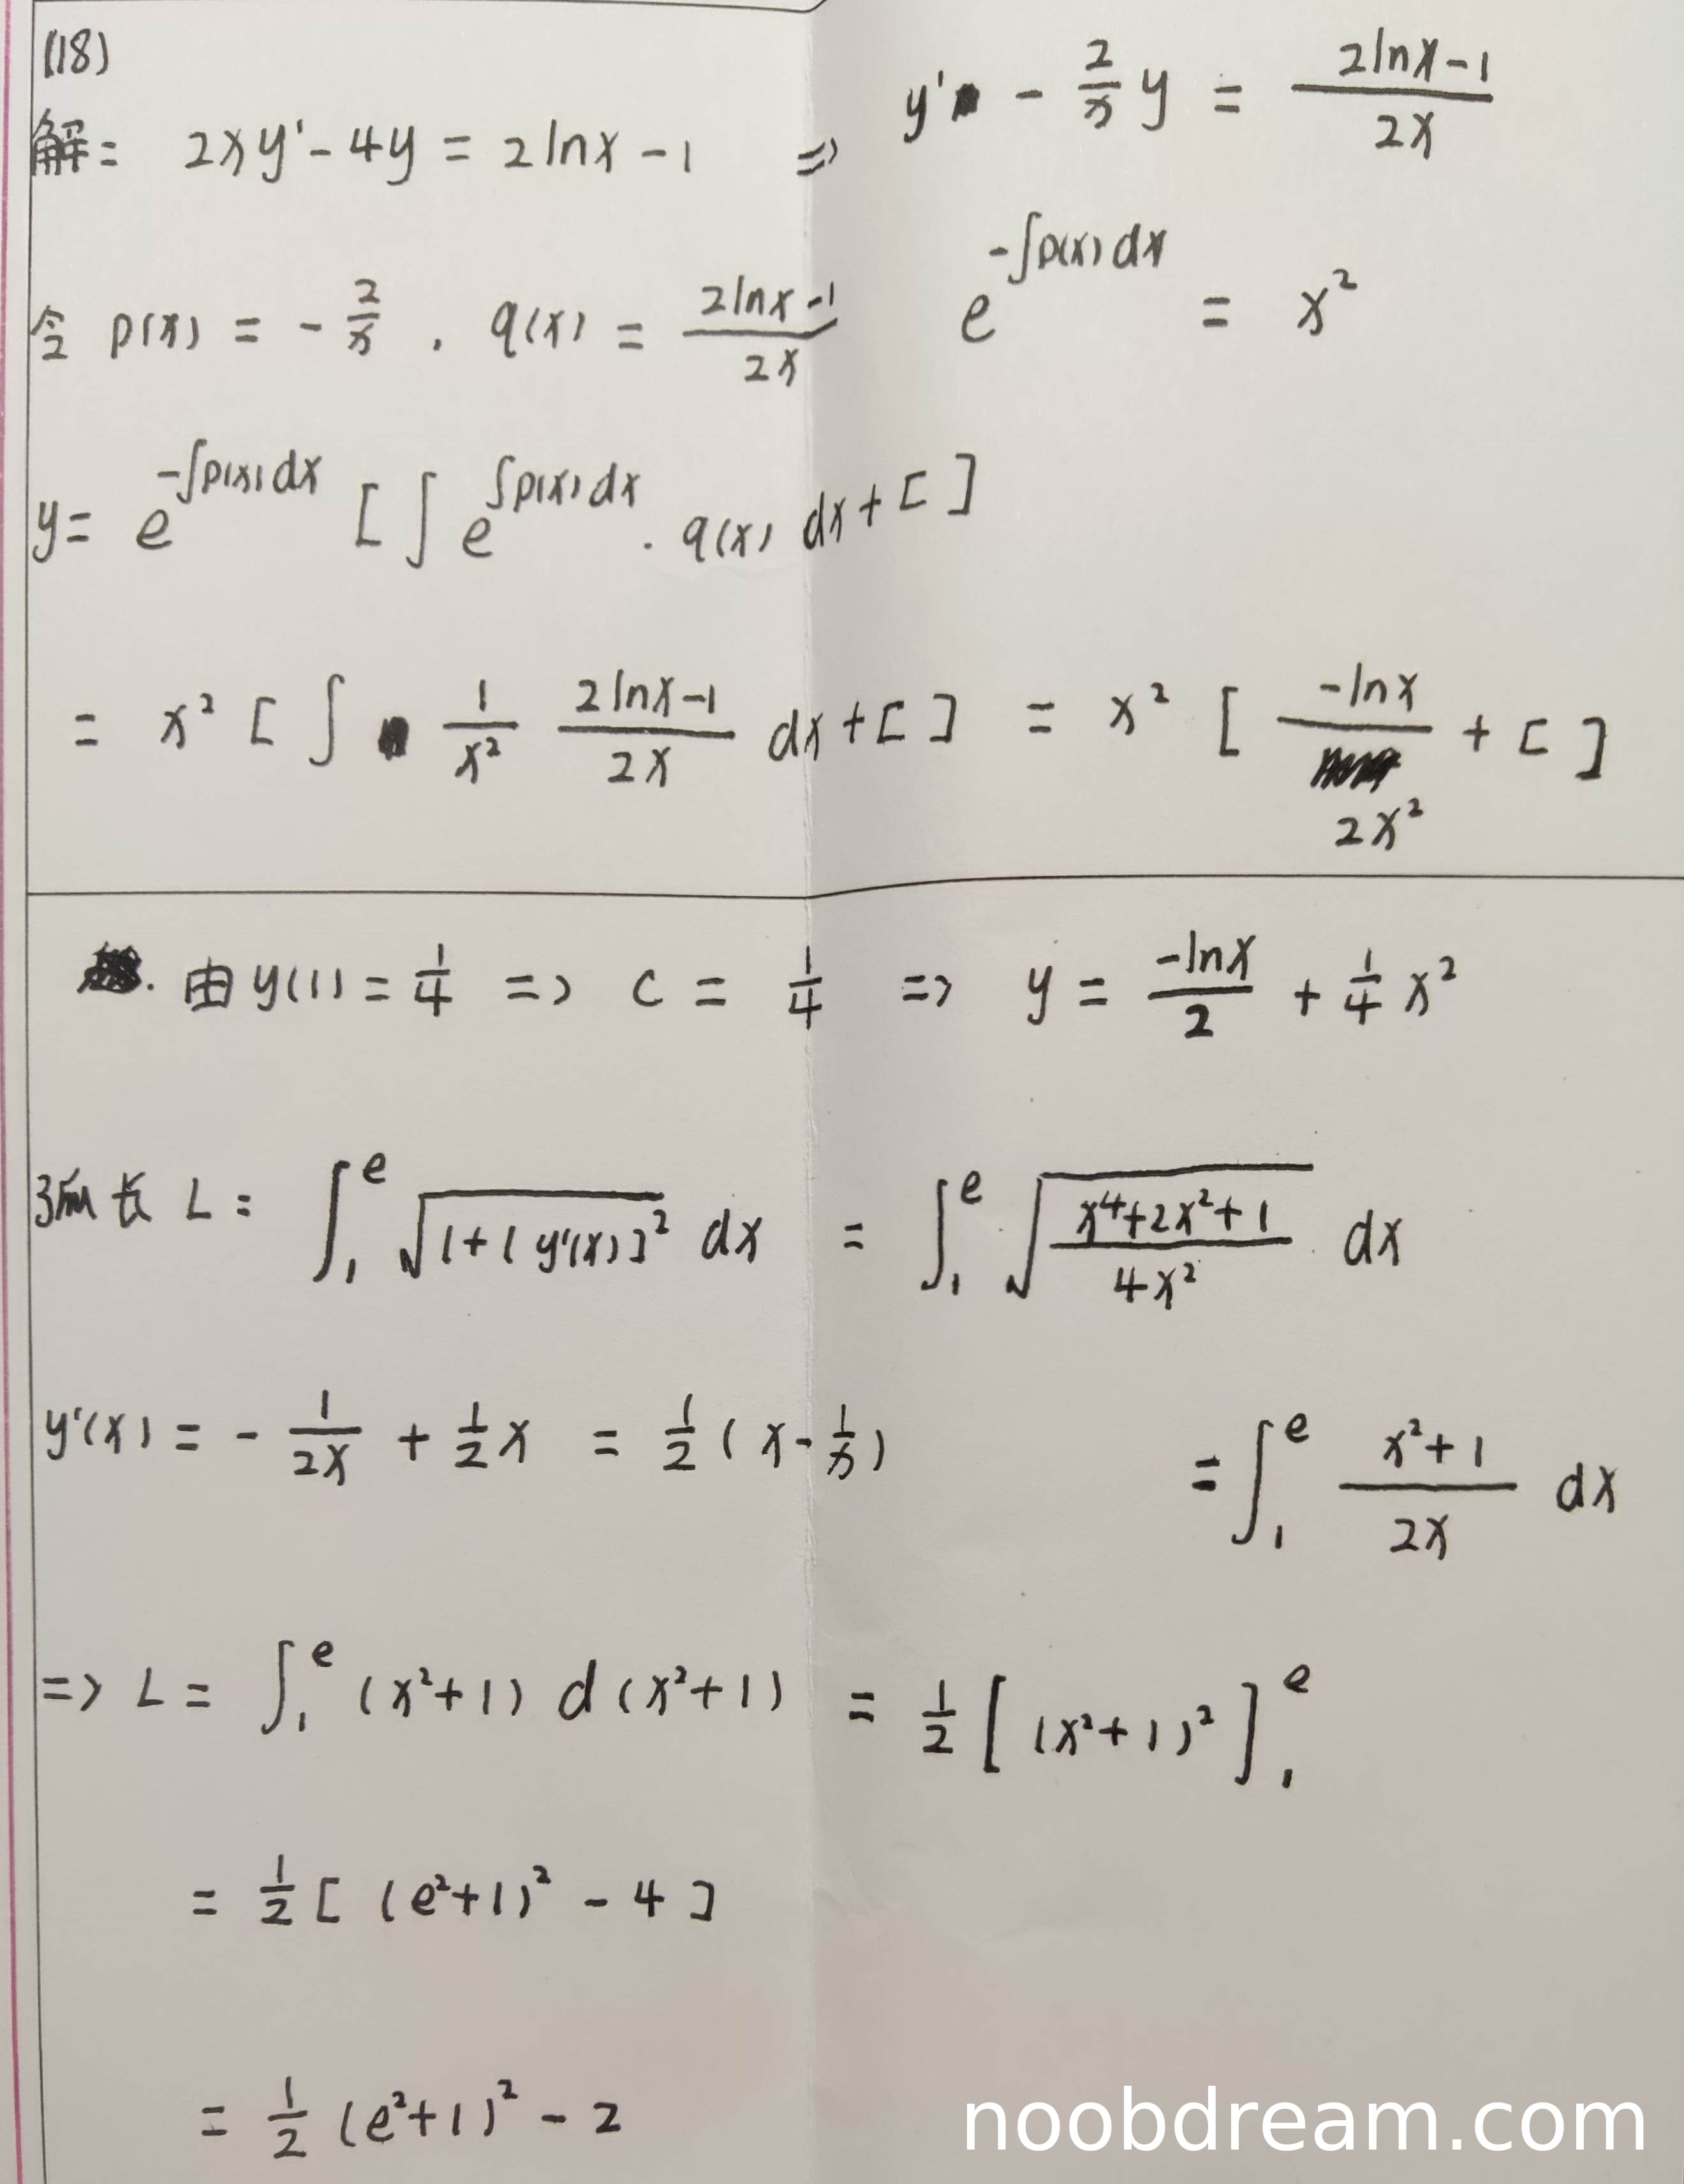 (18)
解: 2xy' - 4y = 2lnx - 1 => y' - 2/x y = (2lnx-1)/(2x)
令 p(x) = - 2/x . q(x) = (2lnx-1)/(2x) e^(-∫p(x)dx) = x²
y = e^(-∫p(x)dx) [ ∫ e^(∫p(x)dx) . q(x) dx + C ]
= x² [ ∫ 1/x² (2lnx-1)/(2x) dx + C ] = x² [ (-lnx)/(2x²) + C ]
由 y(1) = 1/4 => C = 1/4 => y = (-lnx)/2 + 1/4 x²
弧长 L = ∫₁^e √(1+[y'(x)]²) dx = ∫₁^e √((x⁴+2x²+1)/(4x²)) dx
y'(x) = - 1/(2x) + 1/2 x = 1/2 (x - 1/x) = ∫₁^e (x²+1)/(2x) dx
=> L = ∫₁^e (x²+1) d(x²+1) = 1/2 [ (x²+1)² ]₁^e
= 1/2 [ (e²+1)² - 4 ]
= 1/2 (e²+1)² - 2
noobdream.com